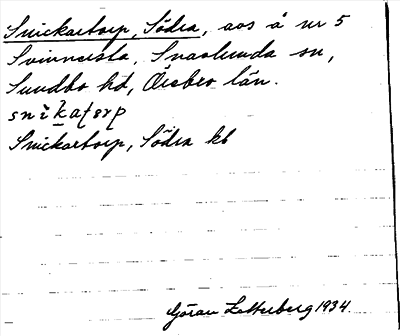 Snickartorp, Södra, avs å nr 5
Svinnersta, Snavlunda sn,
Sundbo hd, Örebro län.
Snickartorp, Södra kb
Göran Zetterberg 1934